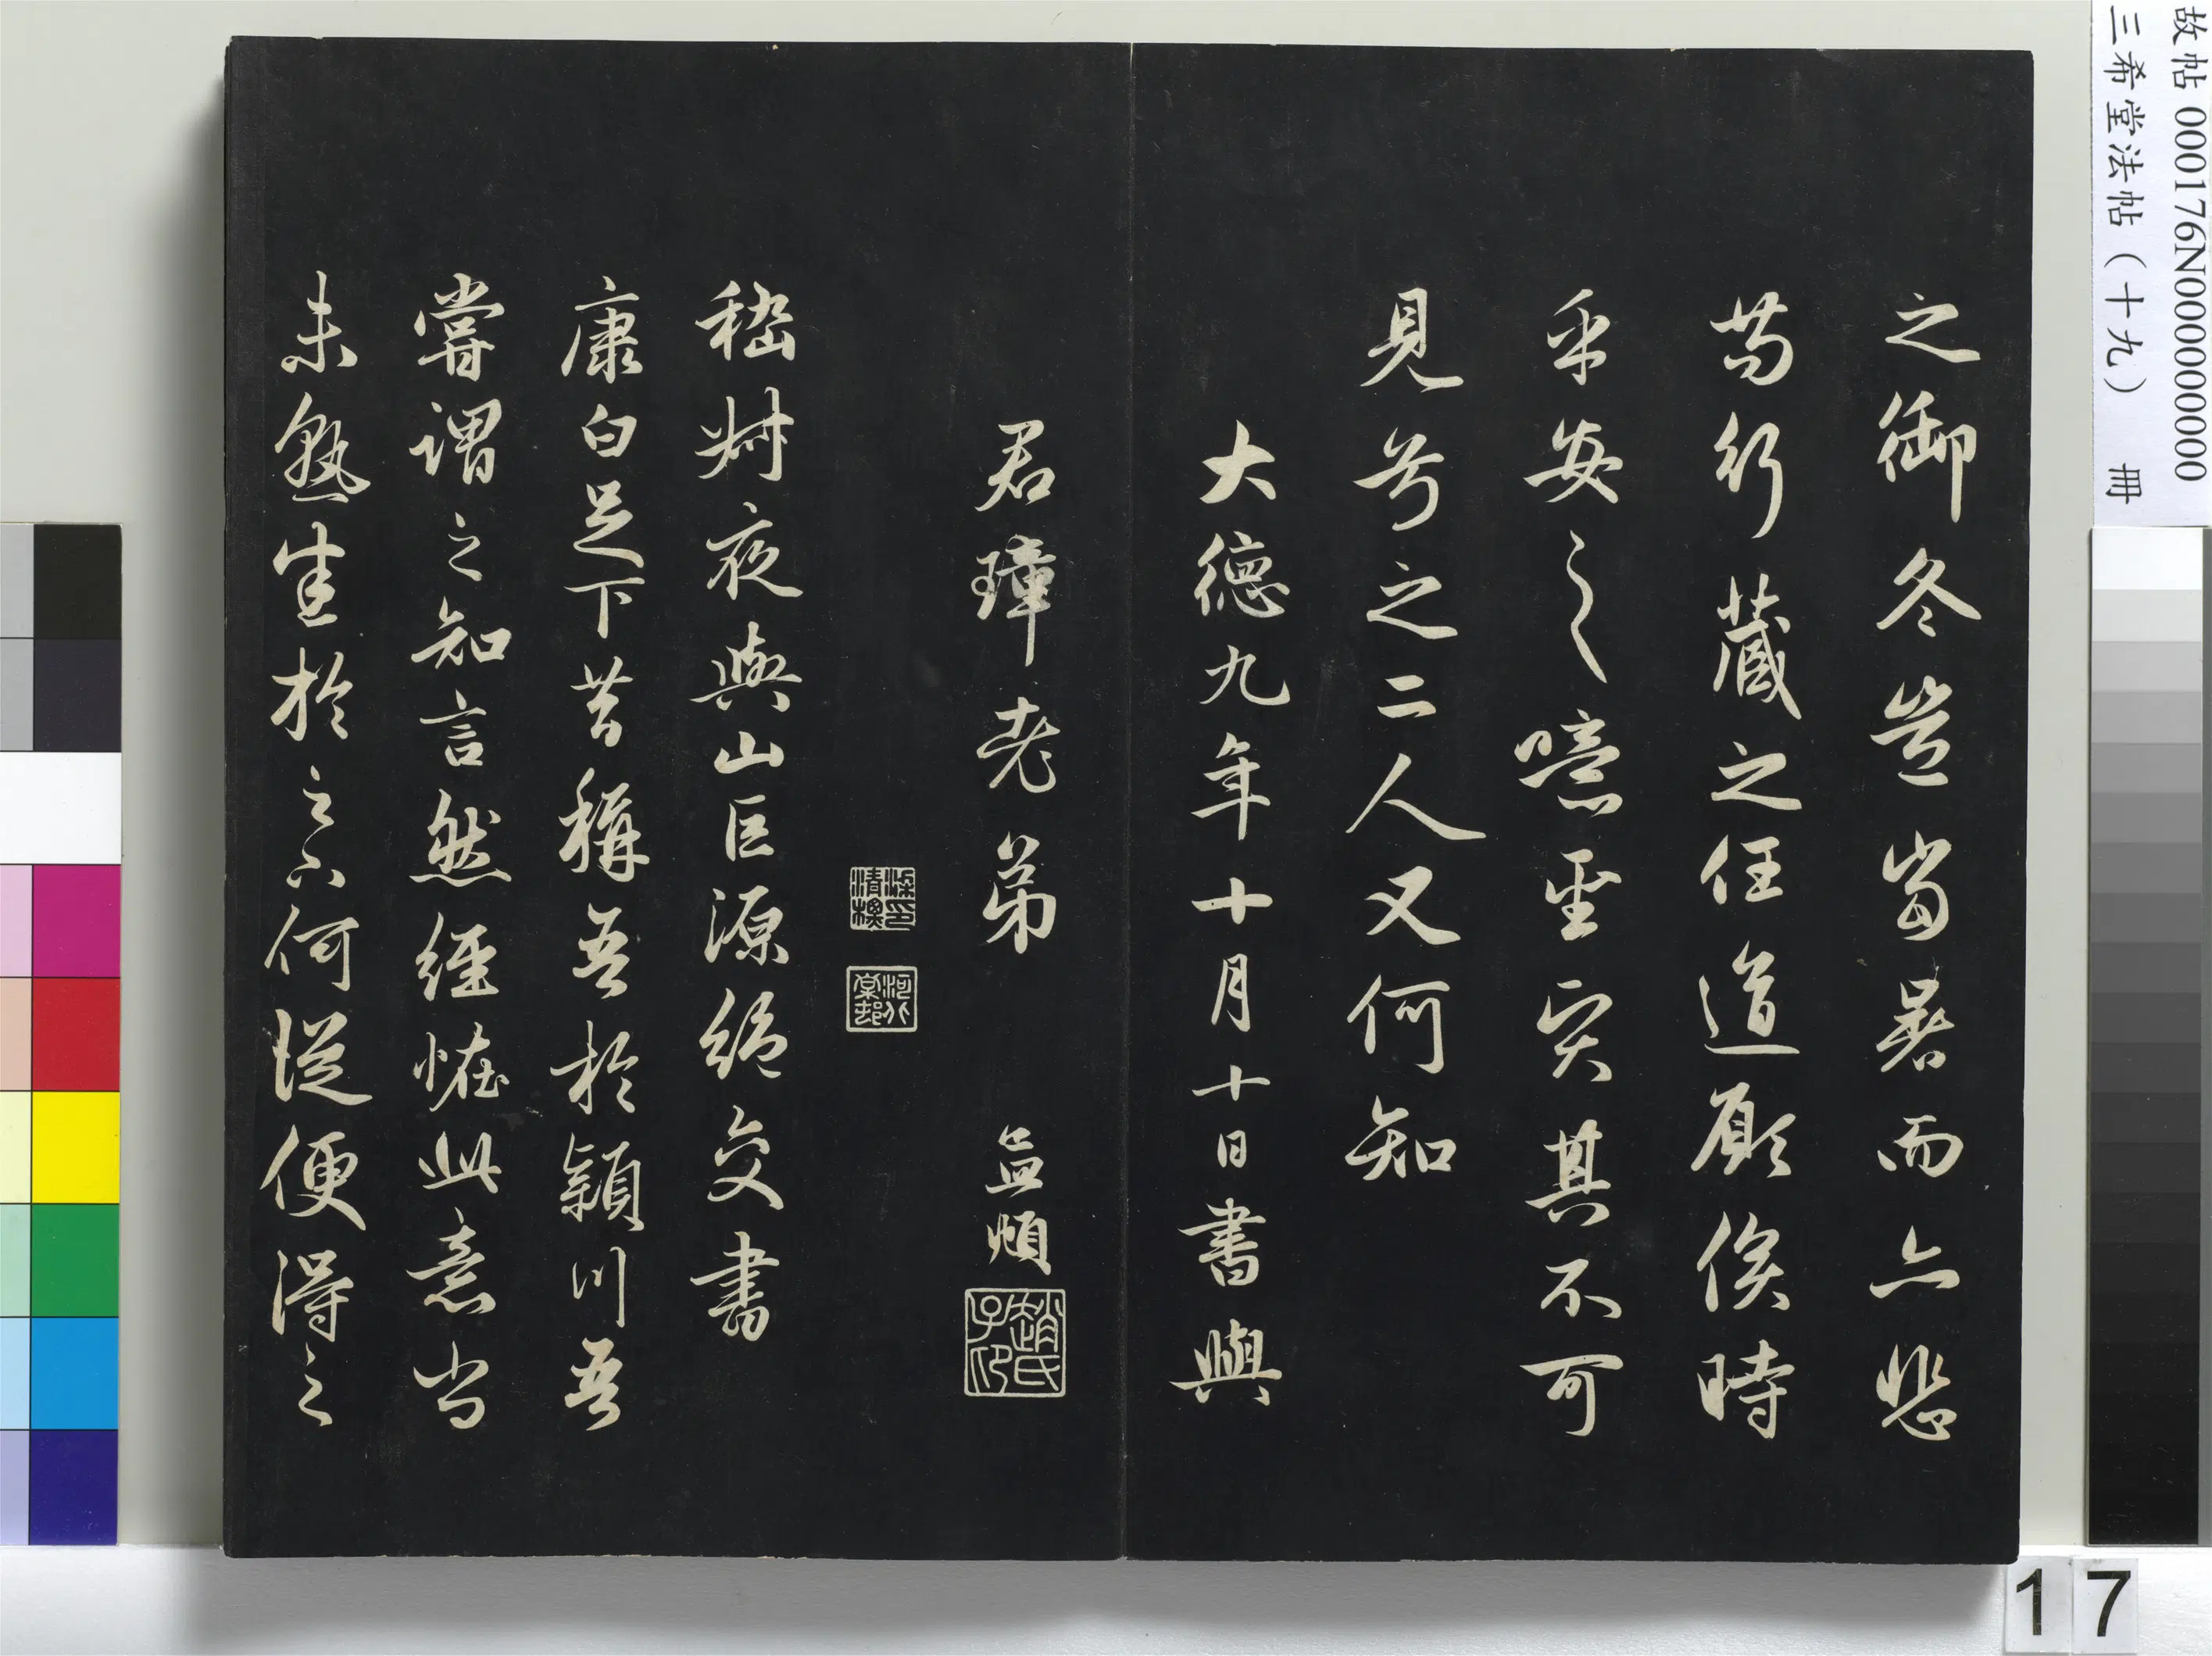 故帖 000176N000000000
三希堂法帖（十九） 冊
之御冬豈當暑而亦悲
苟行藏之任道顧俟時
乎安之噫聖賢其不可
見兮之二人又何知
大德九年十月十日書與
君璋老弟 孟頫
趙氏子昂
嵇叔夜與山巨源絕交書
康白足下昔稱吾於潁川吾
嘗謂之知言然經怪此意尚
未熟悉於足下何從便得之
17